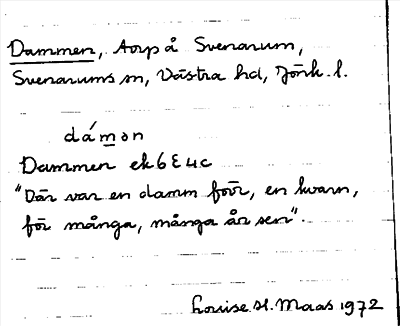 Dammen, torp å Svenarum,
Svenarums sn, Västra hd, Jönk. l.
dám̲ən
Dammen ek 6E4c
"Där var en damm förr, en kvarn,
för många, många år sen".
Louise H. Maas 1972